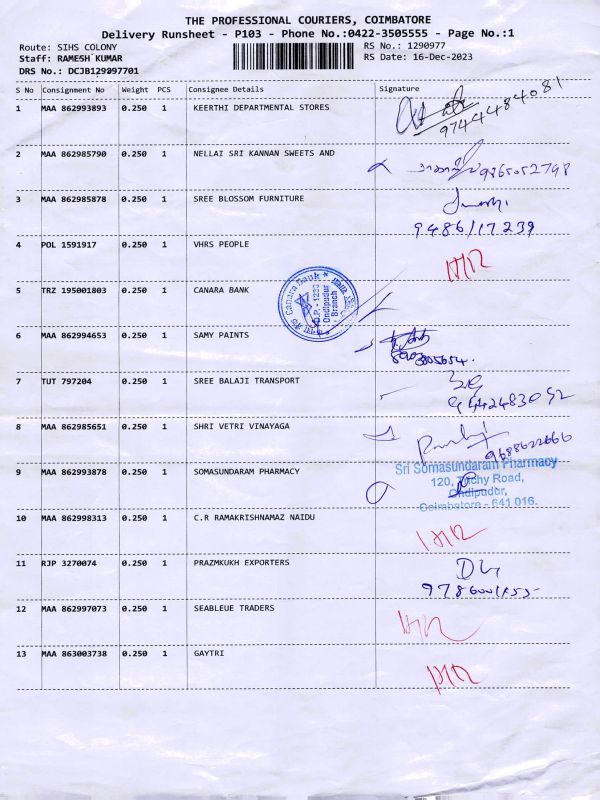 THE PROFESSIONAL COURIERS, COIMBATORE
Delivery Runsheet - P103 - Phone No.:0422-3505555 - Page No.:1
Route: SIHS COLONY RS No.: 1290977
Staff: RAMESH KUMAR RS Date: 16-Dec-2023
DRS No.: DCJB129097701
S No Consignment No Weight PCS Consignee Details Signature
1 MAA 862993893 0.250 1 KEERTHI DEPARTMENTAL STORES
9744484081
2 MAA 862985790 0.250 1 NELLAI SRI KANNAN SWEETS AND
9865052798
3 MAA 862985878 0.250 1 SREE BLOSSOM FURNITURE
9486117239
4 POL 1591917 0.250 1 VHRS PEOPLE
5 TRZ 195001803 0.250 1 CANARA BANK
Canara Bank
D.P. - 1233
Ondipudur
Branch
6 MAA 862994653 0.250 1 SAMY PAINTS
7 TUT 797204 0.250 1 SREE BALAJI TRANSPORT
9442483052
8 MAA 862985651 0.250 1 SHRI VETRI VINAYAGA
9688622666
9 MAA 862993878 0.250 1 SOMASUNDARAM PHARMACY
Sri Somasundaram Pharmacy
120, Trichy Road,
Ondipudur,
Coimbatore - 641 016.
10 MAA 862998313 0.250 1 C.R RAMAKRISHNAMAZ NAIDU
11 RJP 3270074 0.250 1 PRAZMKUKH EXPORTERS
12 MAA 862997073 0.250 1 SEABLEUE TRADERS
13 MAA 863003738 0.250 1 GAYTRI